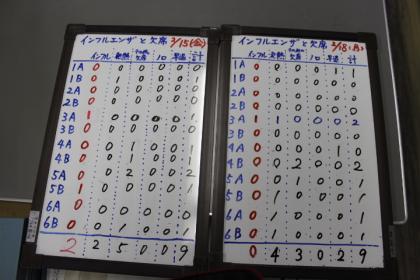 インフルエンザと欠席 2/15(金)
インフル 発熱 その他の欠席 ノロ 早退 計
1A 0 0 0 0 0 0
1B 0 0 0 0 0
2A 0 0 0 0 0
2B 0 0 0 0 0
3A 1 0 0 0 0 1
3B 0 0 0 0 0
4A 0 0 1 0 0 1
4B 0 0 1 0 0 1
5A 0 0 2 0 0 2
5B 1 0 0 0 0 1
6A 0
6B 0 0 1 0 0 1
2 2 5 0 0 9
インフルエンザと欠席 2/18(月)
インフル 発熱 その他の欠席 ノロ 早退 計
1A 0 0 0 0 1 1
1B 0 0 0 0 0 0
2A 0 0 0 0 0 0
2B 0 0 0 0 0 0
3A 1 0 0 0 2
3B 0 0 0 0 0 0
4A 0 0 0 0 1
4B 0 0 2 0 0 2
5A 0 0 1 0 0 1
5B 0 1 0 0 0 1
6A 0 1 0 0 0 1
6B 0 1 0 0 0 1
0 4 3 0 2 9